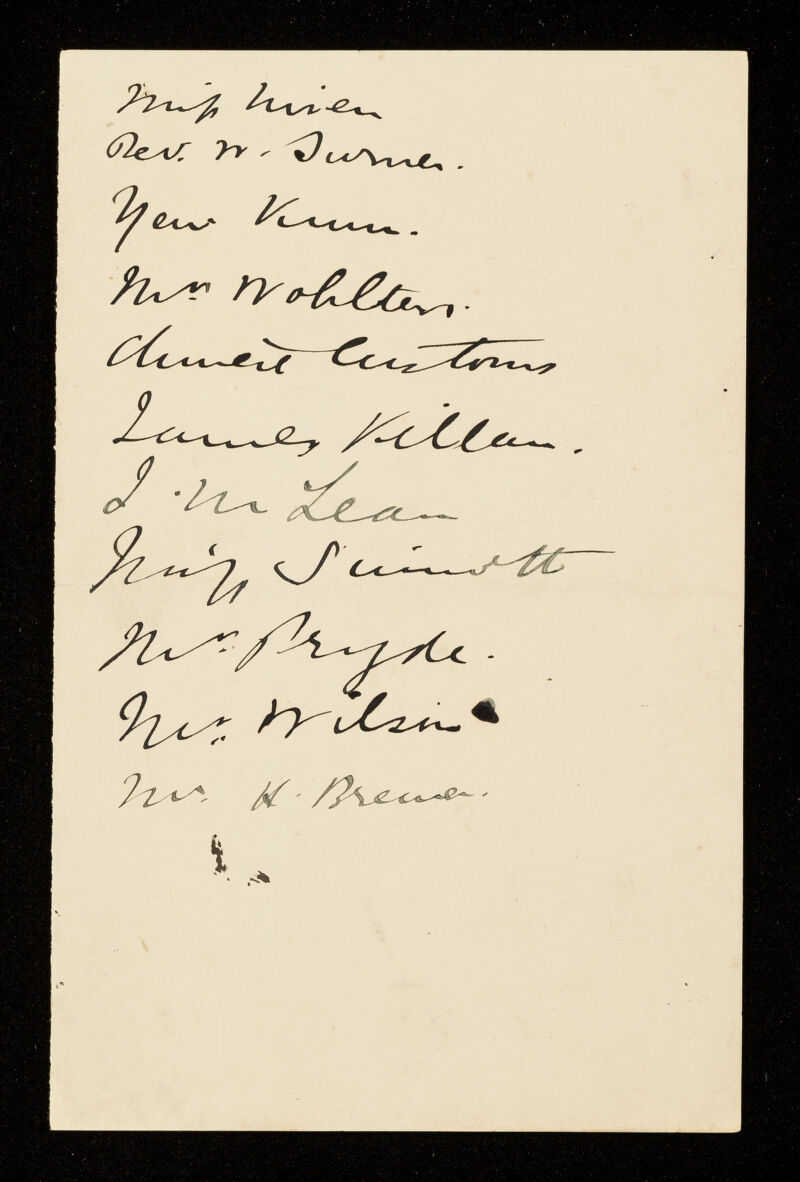 Miss Niven
Rev. W. Turner.
Yew
Mrs Wohlters.
Chinese Customs
James Killan.
J. McLean
Miss Sinnott
Mr. Pryde.
Mr. Wilson
Mr. H. Brewer.